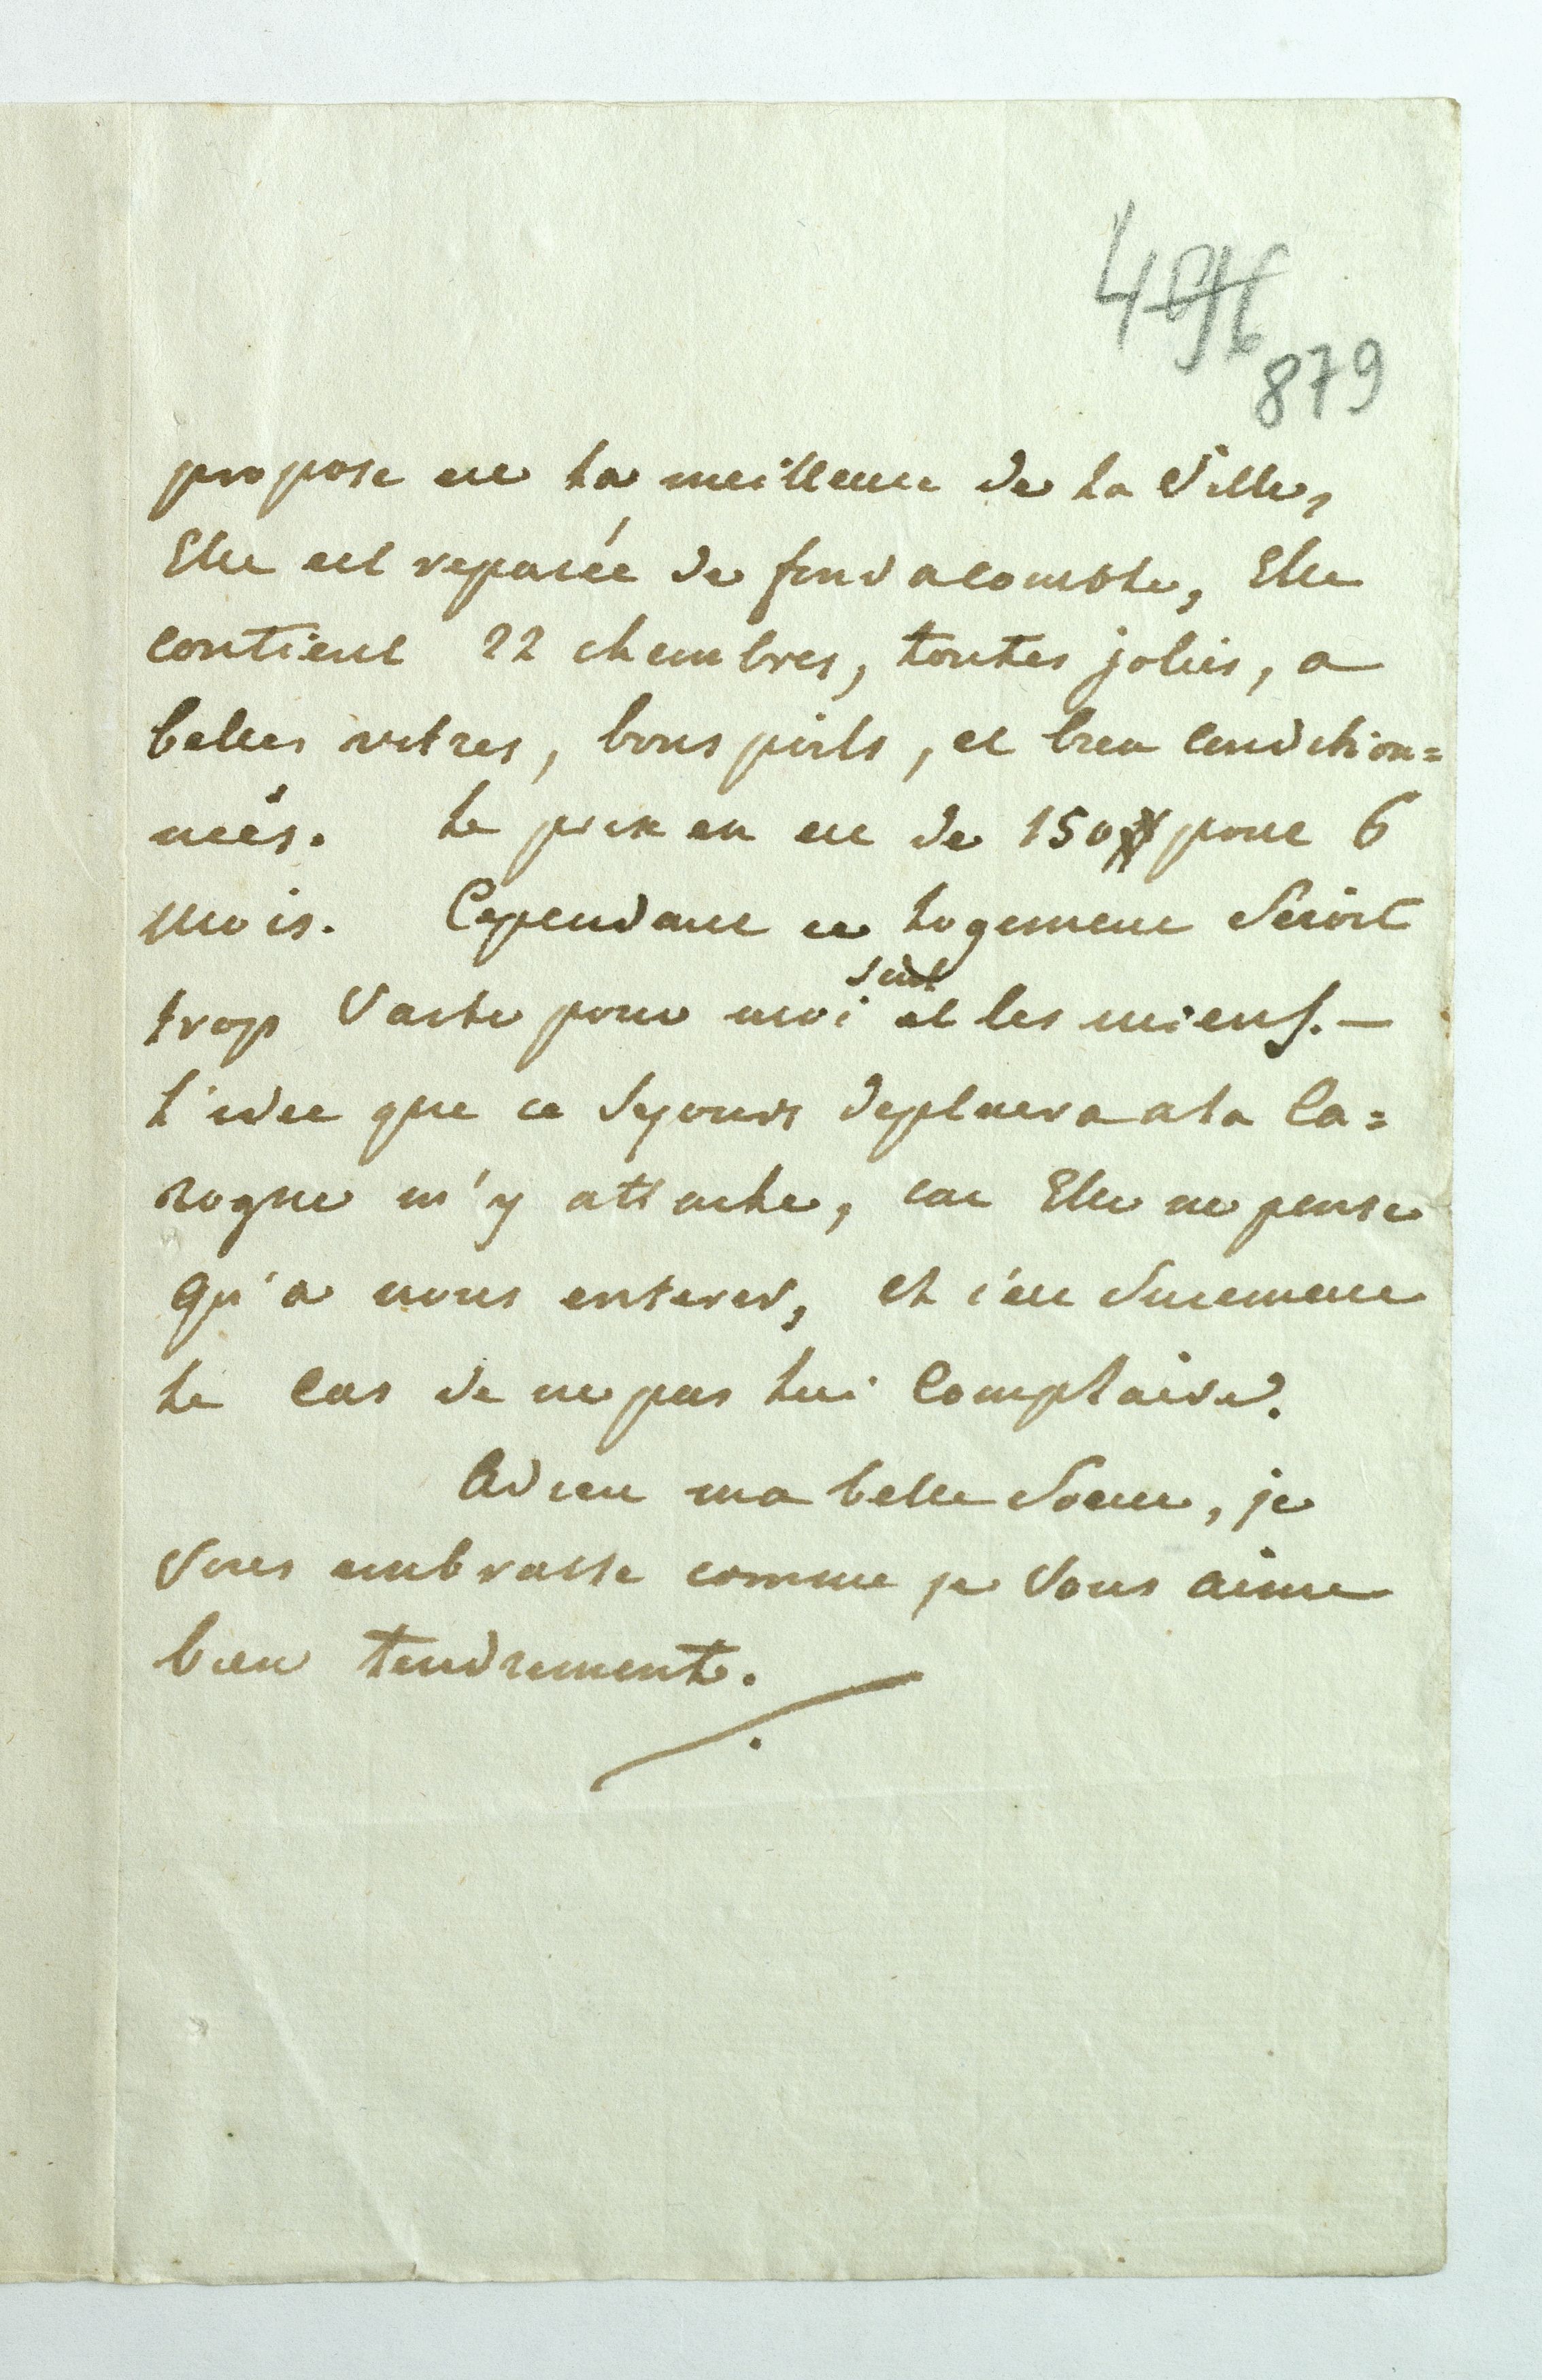 879
propose est la meilleure de la Ville,
Elle est reparée de fond a comble, Elle
contient 22 chembres, toutes jolies, a
belles vitres, bons poils, et bien condition=
neés. Le prix en est de 150 # pour 6
mois. Cependant ce logement Seroit
trop Vaste pour moi seul et les miens. —
L'idee que ce Sejours deplaera a la Ca=
rogne m'y attache, car Elle ne pense
qu'a nous enterer, et c'est Surement
le cas de ne pas lui Complaire.
Adieu ma belle Soeur, je
Vous embrasse comme je Vous aime
bien tendrement.